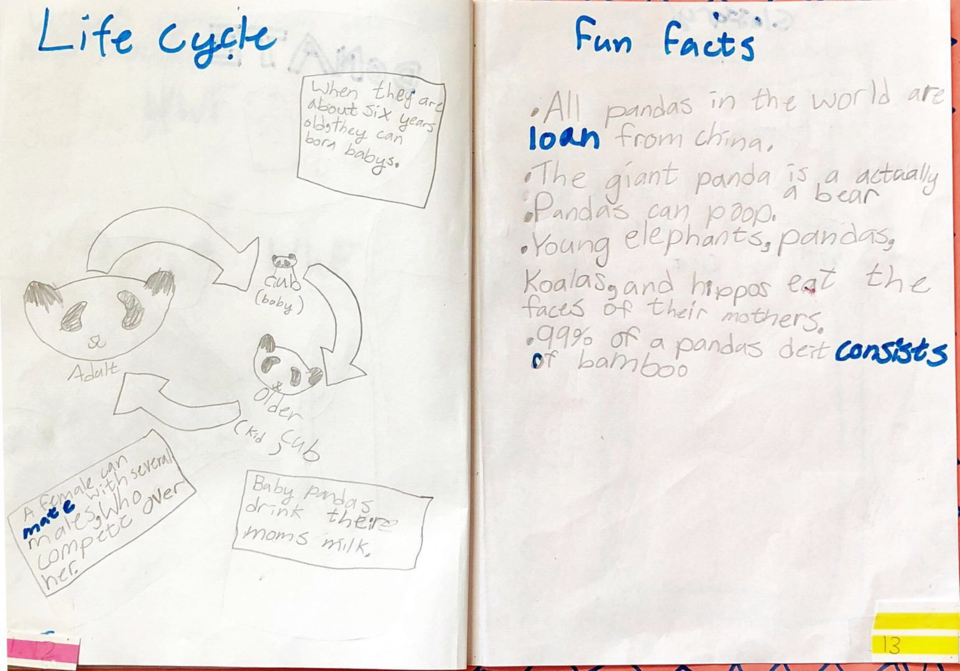 Life cycle
When they are
about six years
old, they can
born babys.
cub
(baby)
Adult
Older
(kid) cub
A female can
mate with several
males, who
compete over
her.
Baby pandas
drink there
moms milk.
12
Fun facts
• All pandas in the world are
loan from china.
• The giant panda is a actually
a bear
• Pandas can poop.
• Young elephants, pandas,
Koalas, and hippos eat the
faces of their mothers.
• 99% of a pandas deit consists
of bamboo
13